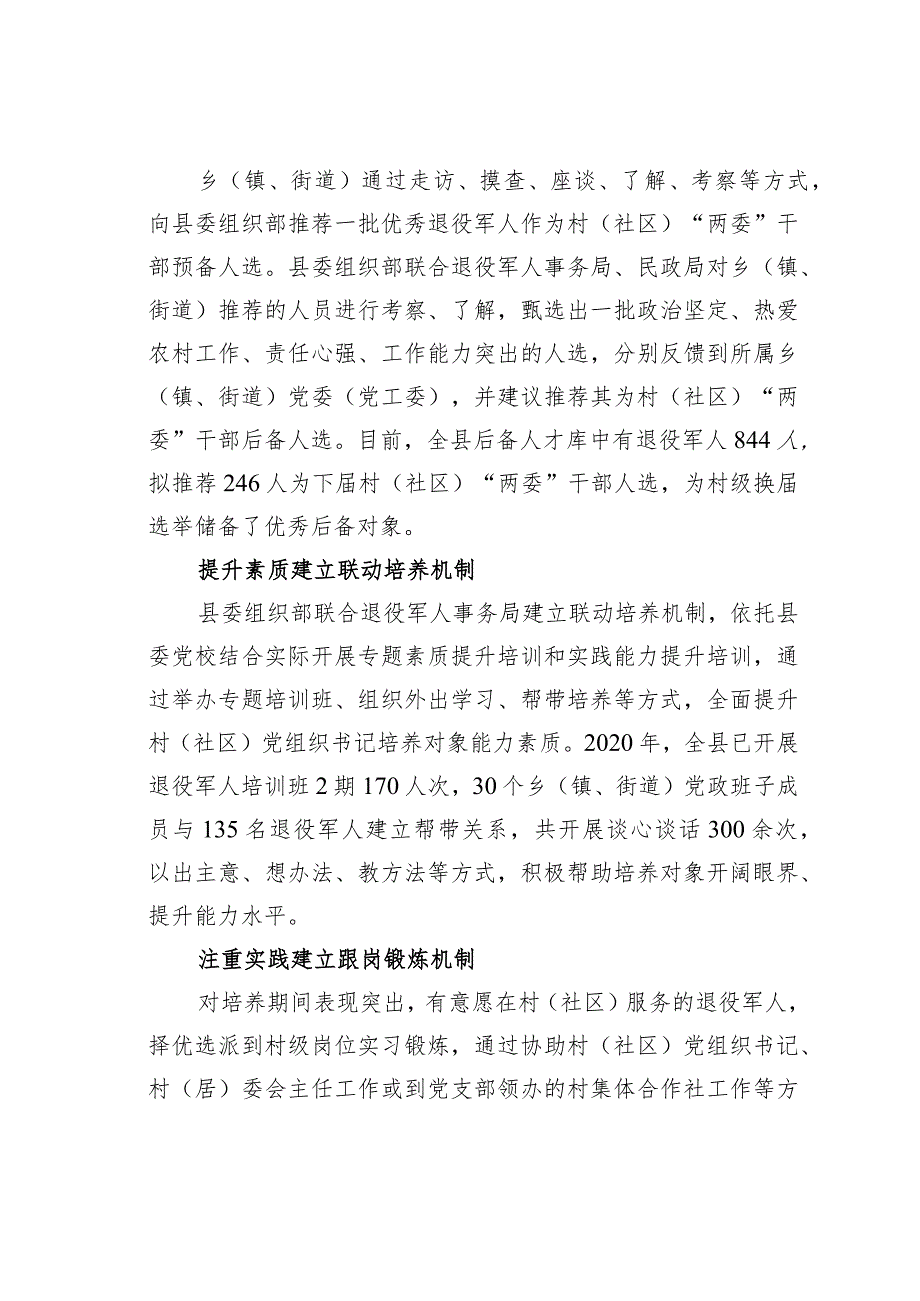 乡（镇、街道）通过走访、摸查、座谈、了解、考察等方式，
向县委组织部推荐一批优秀退役军人作为村（社区）“两委”干
部预备人选。县委组织部联合退役军人事务局、民政局对乡（镇、
街道）推荐的人员进行考察、了解，甄选出一批政治坚定、热爱
农村工作、责任心强、工作能力突出的人选，分别反馈到所属乡
（镇、街道）党委（党工委），并建议推荐其为村（社区）“两
委”干部后备人选。目前，全县后备人才库中有退役军人 844 人，
拟推荐 246 人为下届村（社区）“两委”干部人选，为村级换届
选举储备了优秀后备对象。
提升素质建立联动培养机制
县委组织部联合退役军人事务局建立联动培养机制，依托县
委党校结合实际开展专题素质提升培训和实践能力提升培训，通
过举办专题培训班、组织外出学习、帮带培养等方式，全面提升
村（社区）党组织书记培养对象能力素质。2020 年，全县已开展
退役军人培训班 2 期 170 人次，30 个乡（镇、街道）党政班子成
员与 135 名退役军人建立帮带关系，共开展谈心谈话 300 余次，
以出主意、想办法、教方法等方式，积极帮助培养对象开阔眼界、
提升能力水平。
注重实践建立跟岗锻炼机制
对培养期间表现突出，有意愿在村（社区）服务的退役军人，
择优选派到村级岗位实习锻炼，通过协助村（社区）党组织书记、
村（居）委会主任工作或到党支部领办的村集体合作社工作等方